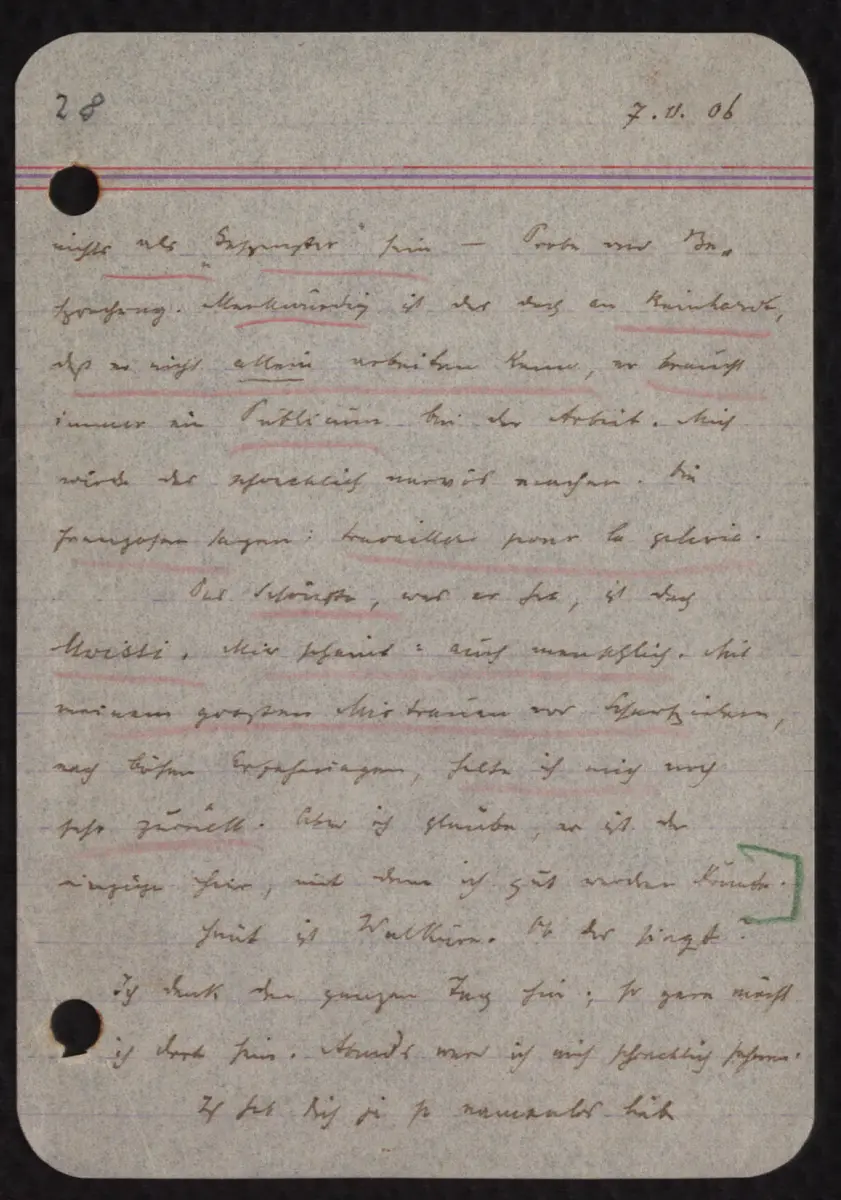 28 7.11.06
nichts als „Gespenster“ sein — Probe und Be-
sprechung. Merkwürdig ist das doch an Reinhardt,
daß er nicht allein arbeiten kann, er braucht
immer ein Publicum bei der Arbeit. Mich
würde das schrecklich nervös machen. Die
Franzosen sagen: travailler pour la galerie.
Das Schönste, was er hat, ist doch
Moissi. Mir scheint: auch menschlich. Mit
meinem großen Mistrauen vor Schauspielern,
nach bösen Erfahrungen, halte ich mich noch
sehr zurück. Aber ich glaube, er ist der
einzige hier, mit dem ich gut werden könnte.
Heut ist Walküre. Ob der singt?
Ich denk den ganzen Tag hin; so gern möcht
ich dort sein. Abends werd ich mich schrecklich sehnen.
Ich hab Dich ja so namenlos lieb